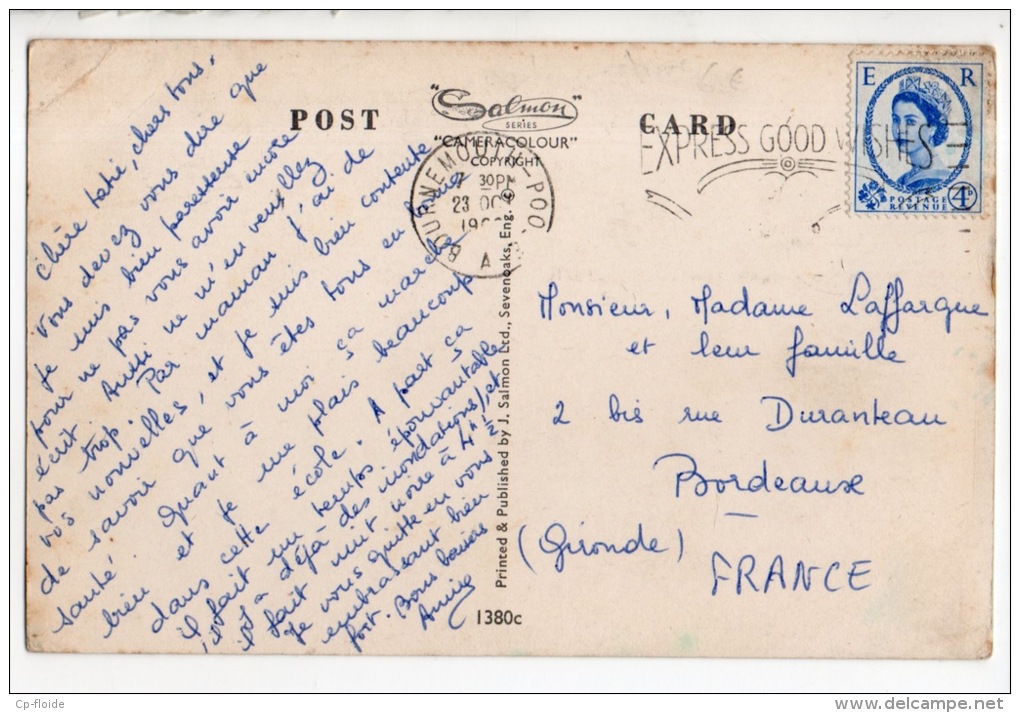 Chère tatie, chers tous,
Vous devez vous dire que
je suis bien paresseuse
pour ne pas vous avoir encore
écrit. Aussi ne m'en veuillez
pas trop. Par maman j'ai de
vos nouvelles, et je suis bien contente
de savoir que vous êtes tous en bonne
santé. Quant à moi ça marche
bien et je me plais beaucoup
dans cette école. A part ça
il fait un temps épouvantable
(il y a déjà des inondations), et
il fait nuit noire à 4h ½
Je vous quitte en vous
embrassant bien
fort. Bons baisers
Annie
POST CARD
"Salmon"
SERIES
"CAMERACOLOUR"
COPYRIGHT
Printed & Published by J. Salmon Ltd., Sevenoaks, Eng. ©
1380c
BOURNEMOUTH-POO
7 30PM
23 OCT
19
A
EXPRESS GOOD WISHES
E R
4D
POSTAGE
REVENUE
Monsieur, Madame Laffargue
et leur famille
2 bis rue Duranteau
Bordeaux
(Gironde)
FRANCE
Cp-floide
www.delcampe.net